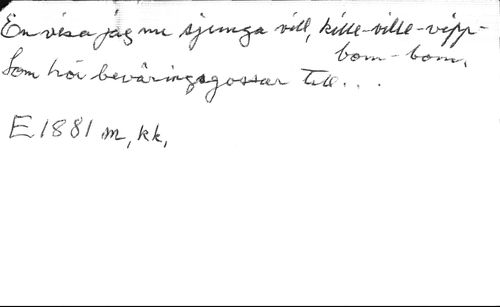 En visa jag nu sjunga vill, kille-ville-vipp-
bom-bom,
Som hör beväringsgossar till...
E 1881 m, kk,